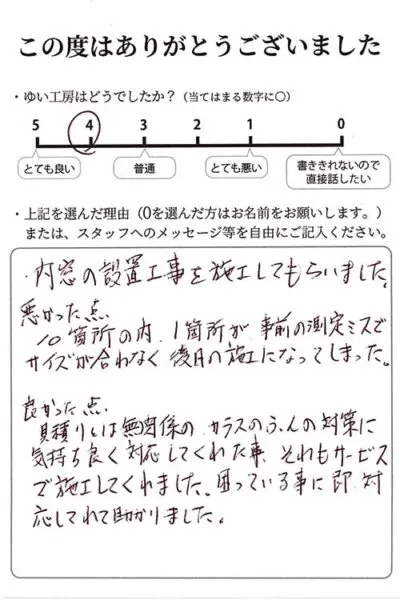 この度はありがとうございました
・ゆい工房はどうでしたか？（当てはまる数字に〇）
5 4 3 2 1 0
とても良い 普通 とても悪い 書ききれないので
直接話したい
・上記を選んだ理由（0を選んだ方はお名前をお願いします。）
または、スタッフへのメッセージ等を自由にご記入ください。
・内窓の設置工事を施工してもらいました。
悪かった点
10箇所の内、1箇所が事前の測定ミスで
サイズが合わなく後日の施工になってしまった。
良かった点
見積りとは無関係のカラスのふんの対策に
気持ち良く対応してくれた事、それもサービス
で施工してくれました。困っている事に即対
応してれて助かりました。